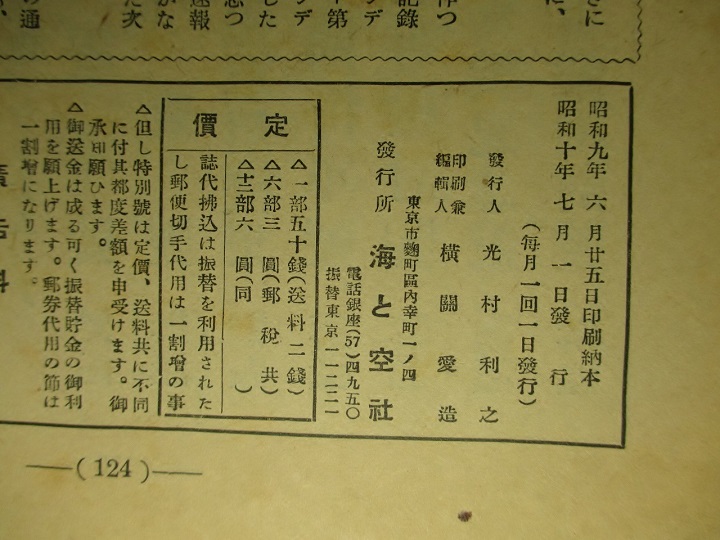 昭和九年 六 月廿五日印刷納本
昭和十年 七 月 一 日 發 行
(毎月一回一日發行)
發行人 光 村 利 之
印刷兼
編輯人 橫 關 愛 造
東京市麴町區內幸町一ノ四
發行所 海と空社
電話銀座(57)四九五〇
振替東京 一一二二一
定 價
△一部五十錢(送料二錢)
△六部三 圓(郵 稅 共)
△十二部六 圓(同 )
誌代拂込は振替を利用された
し郵便切手代用は一割增の事
△但し特別號は定價、送料共に不同
に付其都度差額を申受けます。御
承知願ひます。
△御送金は成る可く振替貯金の御利
用を願上げます。郵券代用の節は
一割增になります。
(124)